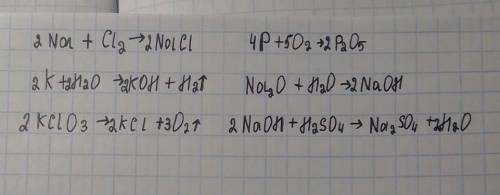 2 Na + Cl₂ → 2NaCl
4P + 5O₂ → 2P₂O₅
2K + 2H₂O → 2KOH + H₂↑
Na₂O + H₂O → 2NaOH
2 KClO₃ → 2KCl + 3O₂↑
2 NaOH + H₂SO₄ → Na₂SO₄ + 2H₂O